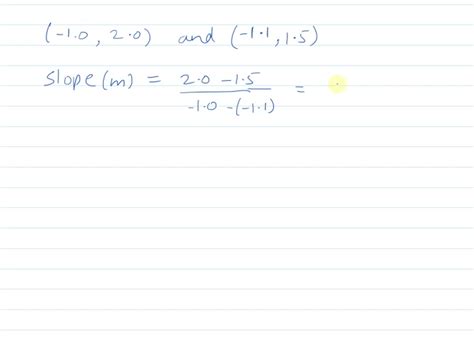 (-1.0, 2.0) and (-1.1, 1.5)
slope(m) = 2.0 - 1.5 / -1.0 - (-1.1) =